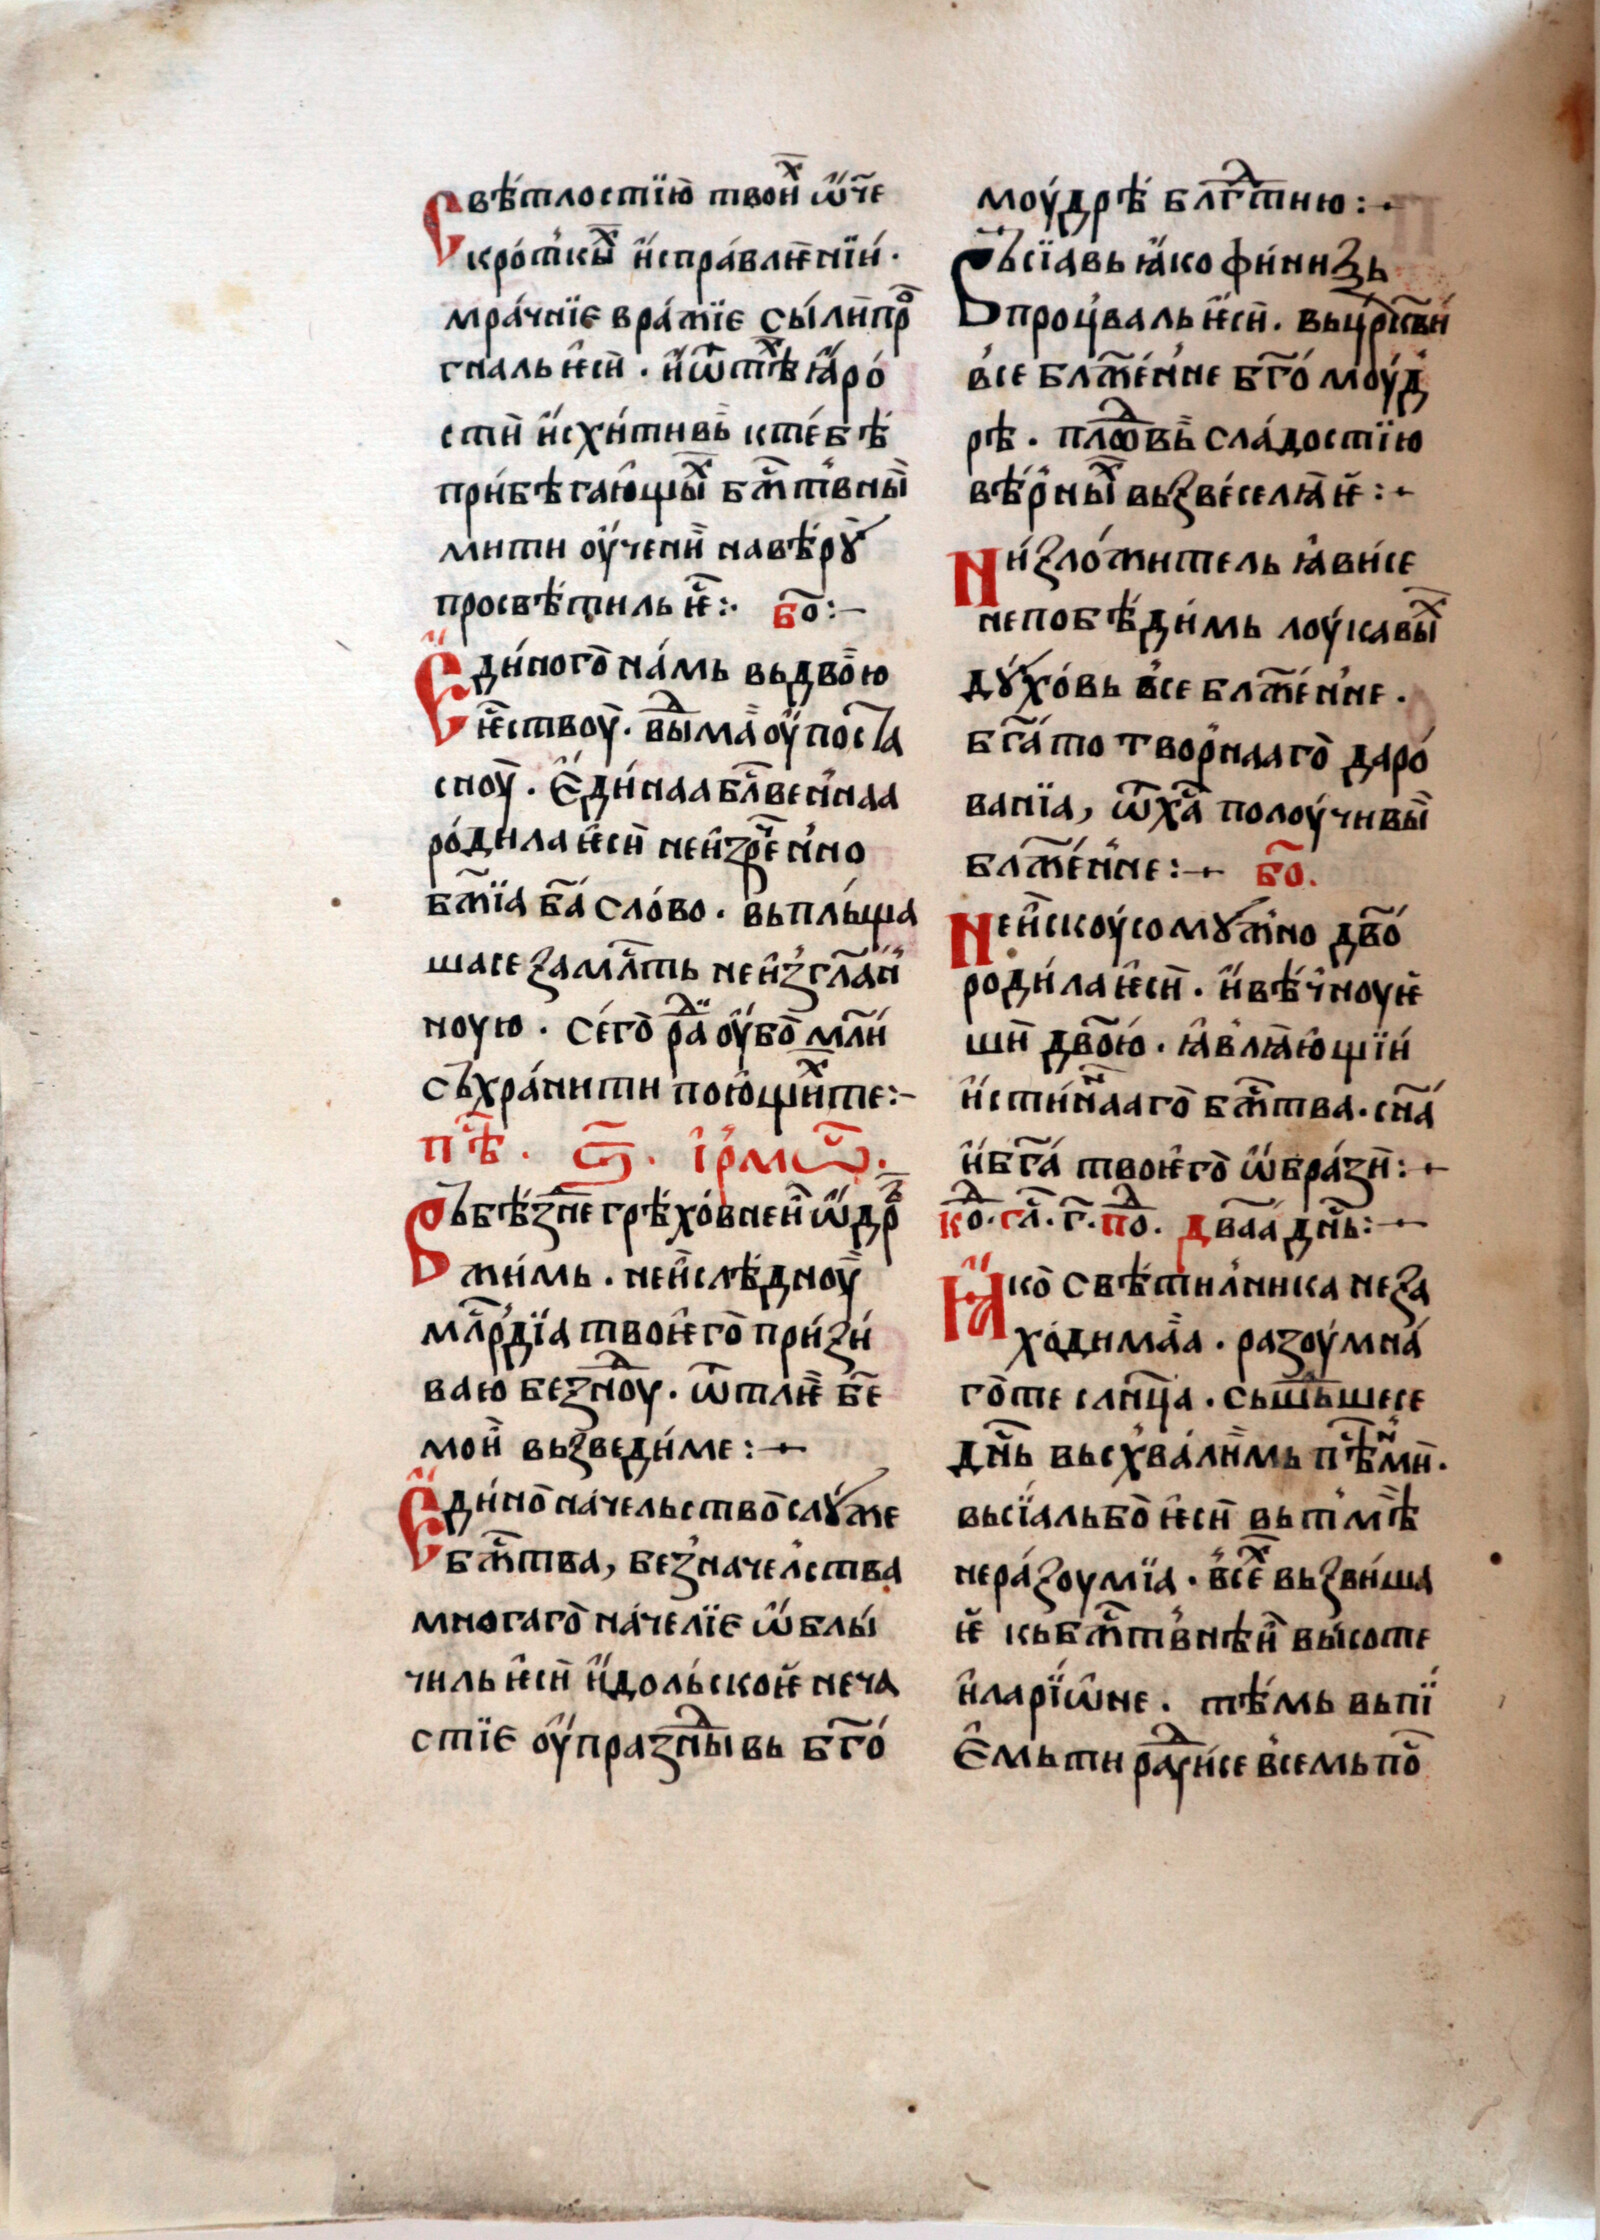 Свѣтлостїю твоих ѡ҃че
кроткых исправлѥнїи·
мрачнїе вратїе сылипро
гналь ѥси· иѿтѣх ꙗро
сти исхитивь ктебѣ
прибѣгающых бж҃твны
мити оученїи навѣрꙋ
просвѣтиль ѥ҃:· бо҃:–
Единого намь вьдвою
ѥ҃ствоу· выдма оупоста
сноу· Единаа бл҃венная
родила ѥси неизреч҃нно
бж҃їа ба҃ слово· вьпльща
шасе замл҃ть неизгл҃ан
ною· Сего рад оубо мл҃и
съхранити поющихте:–
пѣ҃· ѕ҃· їрмѡ҃·
Въбѣзне грѣховнеи ѡдр
жимь· неислѣдноу
млр҃дїа твоѥго призи
ваю безноу· ѿтлѥ бе҃
мои вьзведиме:–
Единоначельство слꙋже
бж҃тва, безначелства
многаго начелїе ѡбли
чиль ѥси идольскоѥ неча
стїе оупразднывь бг҃о
моудрѣ блг҃дтию:–
Въсїавь ꙗко финиѯь
процваль ѥси· вьцр҃тви
все блаж҃енне бг҃о моуд
рѣ· плодовь сладостїю
вѣрных вьзвеселꙗѥ:–
Низложитель ꙗвисе
непобѣдимь лоукавых
дꙋховь все блаж҃енне·
бг҃ато творнааго даро
ванїа, ѿха҃ полоучивы
блаж҃енне:– бо҃·
Неискоусомꙋжно дв҃о
родила ѥси· ивѣчноуѥ
ши дв҃ою· ꙗвлꙗющїи
истиннааго бж҃тва· сн҃а
ибг҃а твоѥго ѡбрази:–
ко҃д· гл҃· г҃· по҃д· два҃а дн҃ь:–
Ꙗко свѣтилника неза
ходимаа· разоумна
готе слнц҃а· сьшьдшесе
дн҃ь вьсхвалимь пѣ҃нми·
вьсїальбо ѥси вьтмѣ
неразоумїа· всех вьзвиша
ѥ кьбж҃твнѣи высоте
иларїѡне· тѣмь вьпї
Емьти радꙋисе всемь по҃